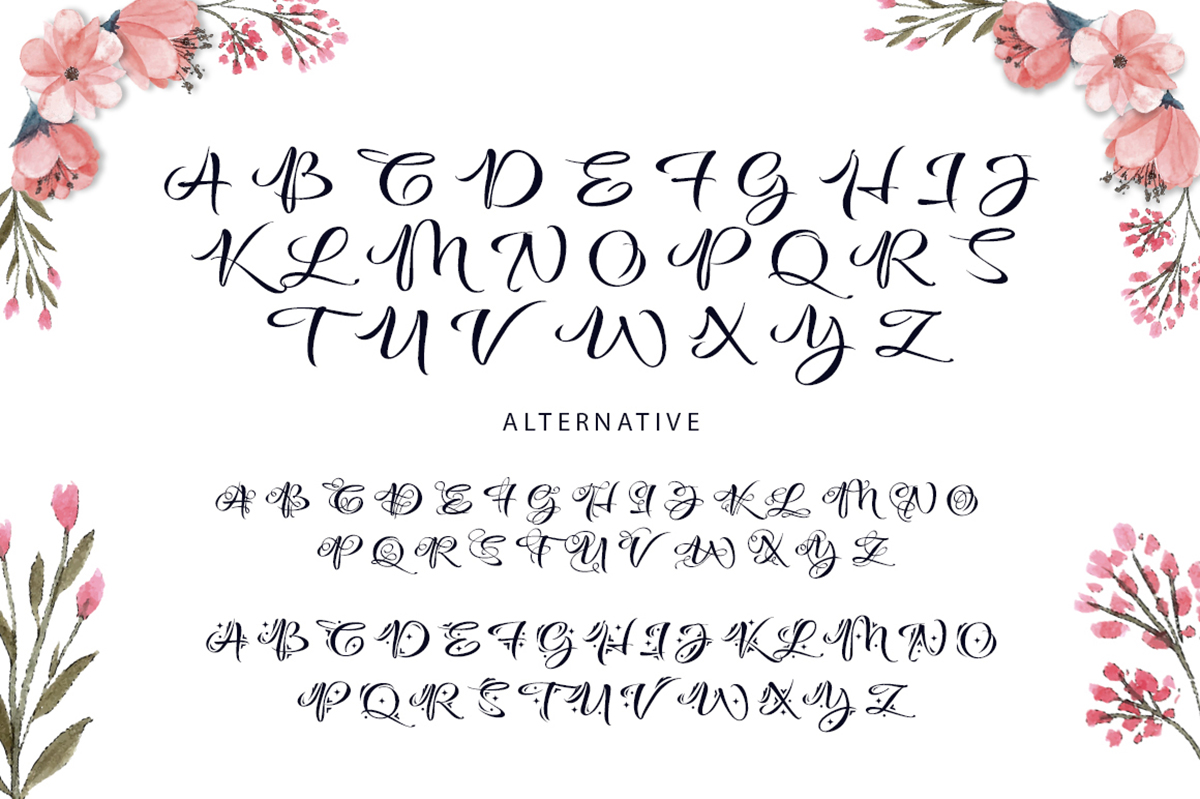 A B C D E F G H I J
K L M N O P Q R S
T U V W X Y Z
ALTERNATIVE
A B C D E F G H I J K L M N O
P Q R S T U V W X Y Z
A B C D E F G H I J K L M N O
P Q R S T U V W X Y Z